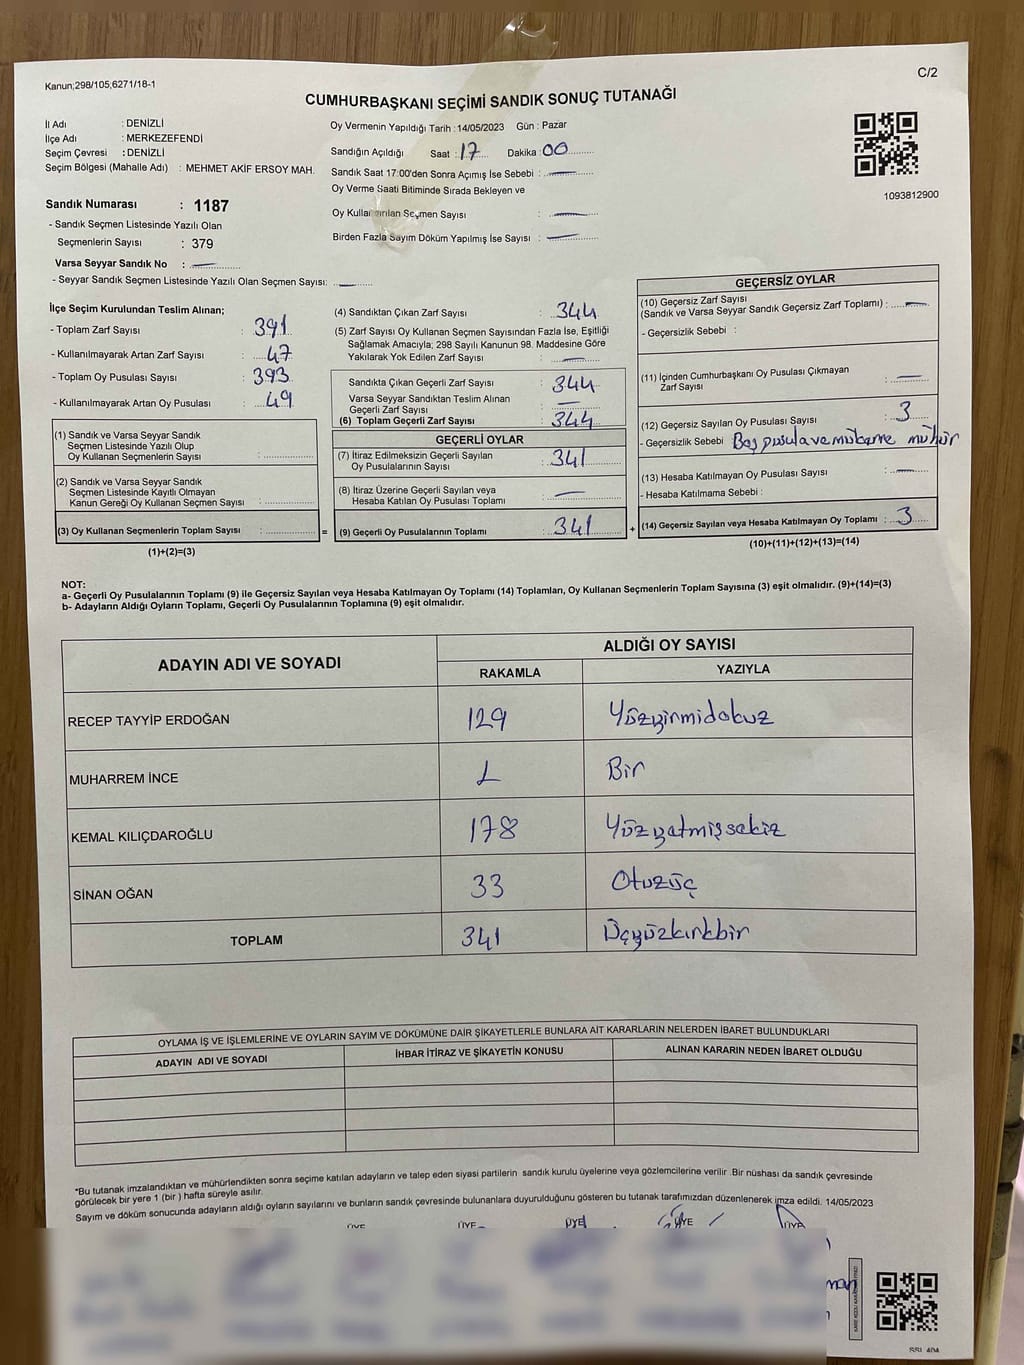 Kanun;298/105,6271/18-1
C/2
CUMHURBAŞKANI SEÇİMİ SANDIK SONUÇ TUTANAĞI
İl Adı : DENİZLİ
İlçe Adı : MERKEZEFENDİ
Seçim Çevresi : DENİZLİ
Seçim Bölgesi (Mahalle Adı) : MEHMET AKİF ERSOY MAH.
Sandık Numarası : 1187
- Sandık Seçmen Listesinde Yazılı Olan
Seçmenlerin Sayısı : 379
Varsa Seyyar Sandık No :
- Seyyar Sandık Seçmen Listesinde Yazılı Olan Seçmen Sayısı:
Oy Vermenin Yapıldığı Tarih : 14/05/2023 Gün : Pazar
Sandığın Açıldığı Saat : 17 Dakika : 00
Sandık Saat 17:00'den Sonra Açımış İse Sebebi :
Oy Verme Saati Bitiminde Sırada Bekleyen ve
Oy Kullandırılan Seçmen Sayısı :
Birden Fazla Sayım Döküm Yapılmış İse Sayısı :
1093812900
İlçe Seçim Kurulundan Teslim Alınan;
- Toplam Zarf Sayısı : 391
- Kullanılmayarak Artan Zarf Sayısı : 47
- Toplam Oy Pusulası Sayısı : 393
- Kullanılmayarak Artan Oy Pusulası : 49
(1) Sandık ve Varsa Seyyar Sandık
Seçmen Listesinde Yazılı Olup
Oy Kullanan Seçmenlerin Sayısı :
(2) Sandık ve Varsa Seyyar Sandık
Seçmen Listesinde Kayıtlı Olmayan
Kanun Gereği Oy Kullanan Seçmen Sayısı :
(3) Oy Kullanan Seçmenlerin Toplam Sayısı : =
(1)+(2)=(3)
(4) Sandıktan Çıkan Zarf Sayısı : 344
(5) Zarf Sayısı Oy Kullanan Seçmen Sayısından Fazla İse, Eşitliği
Sağlamak Amacıyla; 298 Sayılı Kanunun 98. Maddesine Göre
Yakılarak Yok Edilen Zarf Sayısı :
Sandıkta Çıkan Geçerli Zarf Sayısı : 344
Varsa Seyyar Sandıktan Teslim Alınan
Geçerli Zarf Sayısı :
(6) Toplam Geçerli Zarf Sayısı : 344
GEÇERLİ OYLAR
(7) İtiraz Edilmeksizin Geçerli Sayılan
Oy Pusulalarının Sayısı : 341
(8) İtiraz Üzerine Geçerli Sayılan veya
Hesaba Katılan Oy Pusulası Toplamı :
(9) Geçerli Oy Pusulalarının Toplamı : 341 +
GEÇERSİZ OYLAR
(10) Geçersiz Zarf Sayısı
(Sandık ve Varsa Seyyar Sandık Geçersiz Zarf Toplamı) :
- Geçersizlik Sebebi :
(11) İçinden Cumhurbaşkanı Oy Pusulası Çıkmayan
Zarf Sayısı :
(12) Geçersiz Sayılan Oy Pusulası Sayısı : 3
- Geçersizlik Sebebi Boş pusula ve mükerrer mühür
(13) Hesaba Katılmayan Oy Pusulası Sayısı :
- Hesaba Katılmama Sebebi :
(14) Geçersiz Sayılan veya Hesaba Katılmayan Oy Toplamı : 3
(10)+(11)+(12)+(13)=(14)
NOT:
a- Geçerli Oy Pusulalarının Toplamı (9) ile Geçersiz Sayılan veya Hesaba Katılmayan Oy Toplamı (14) Toplamları, Oy Kullanan Seçmenlerin Toplam Sayısına (3) eşit olmalıdır. (9)+(14)=(3)
b- Adayların Aldığı Oyların Toplamı, Geçerli Oy Pusulalarının Toplamına (9) eşit olmalıdır.
ADAYIN ADI VE SOYADI ALDIĞI OY SAYISI
RAKAMLA YAZIYLA
RECEP TAYYİP ERDOĞAN 129 Yüzyirmidokuz
MUHARREM İNCE 1 Bir
KEMAL KILIÇDAROĞLU 178 Yüzyatmişsekiz
SİNAN OĞAN 33 Otuzüç
TOPLAM 341 Üçyüzkırkbir
OYLAMA İŞ VE İŞLEMLERİNE VE OYLARIN SAYIM VE DÖKÜMÜNE DAİR ŞİKAYETLERLE BUNLARA AİT KARARLARIN NELERDEN İBARET BULUNDUKLARI
ADAYIN ADI VE SOYADI İHBAR İTİRAZ VE ŞİKAYETİN KONUSU ALINAN KARARIN NEDEN İBARET OLDUĞU
*Bu tutanak imzalandıktan ve mühürlendikten sonra seçime katılan adayların ve talep eden siyasi partilerin sandık kurulu üyelerine veya gözlemcilerine verilir. Bir nüshası da sandık çevresinde
görülecek bir yere 1 (bir) hafta süreyle asılır.
Sayım ve döküm sonucunda adayların aldığı oyların sayılarını ve bunların sandık çevresinde bulunanlara duyurulduğunu gösteren bu tutanak tarafımızdan düzenlenerek imza edildi. 14/05/2023
ÜYE ÜYE ÜYE ÜYE ÜYE